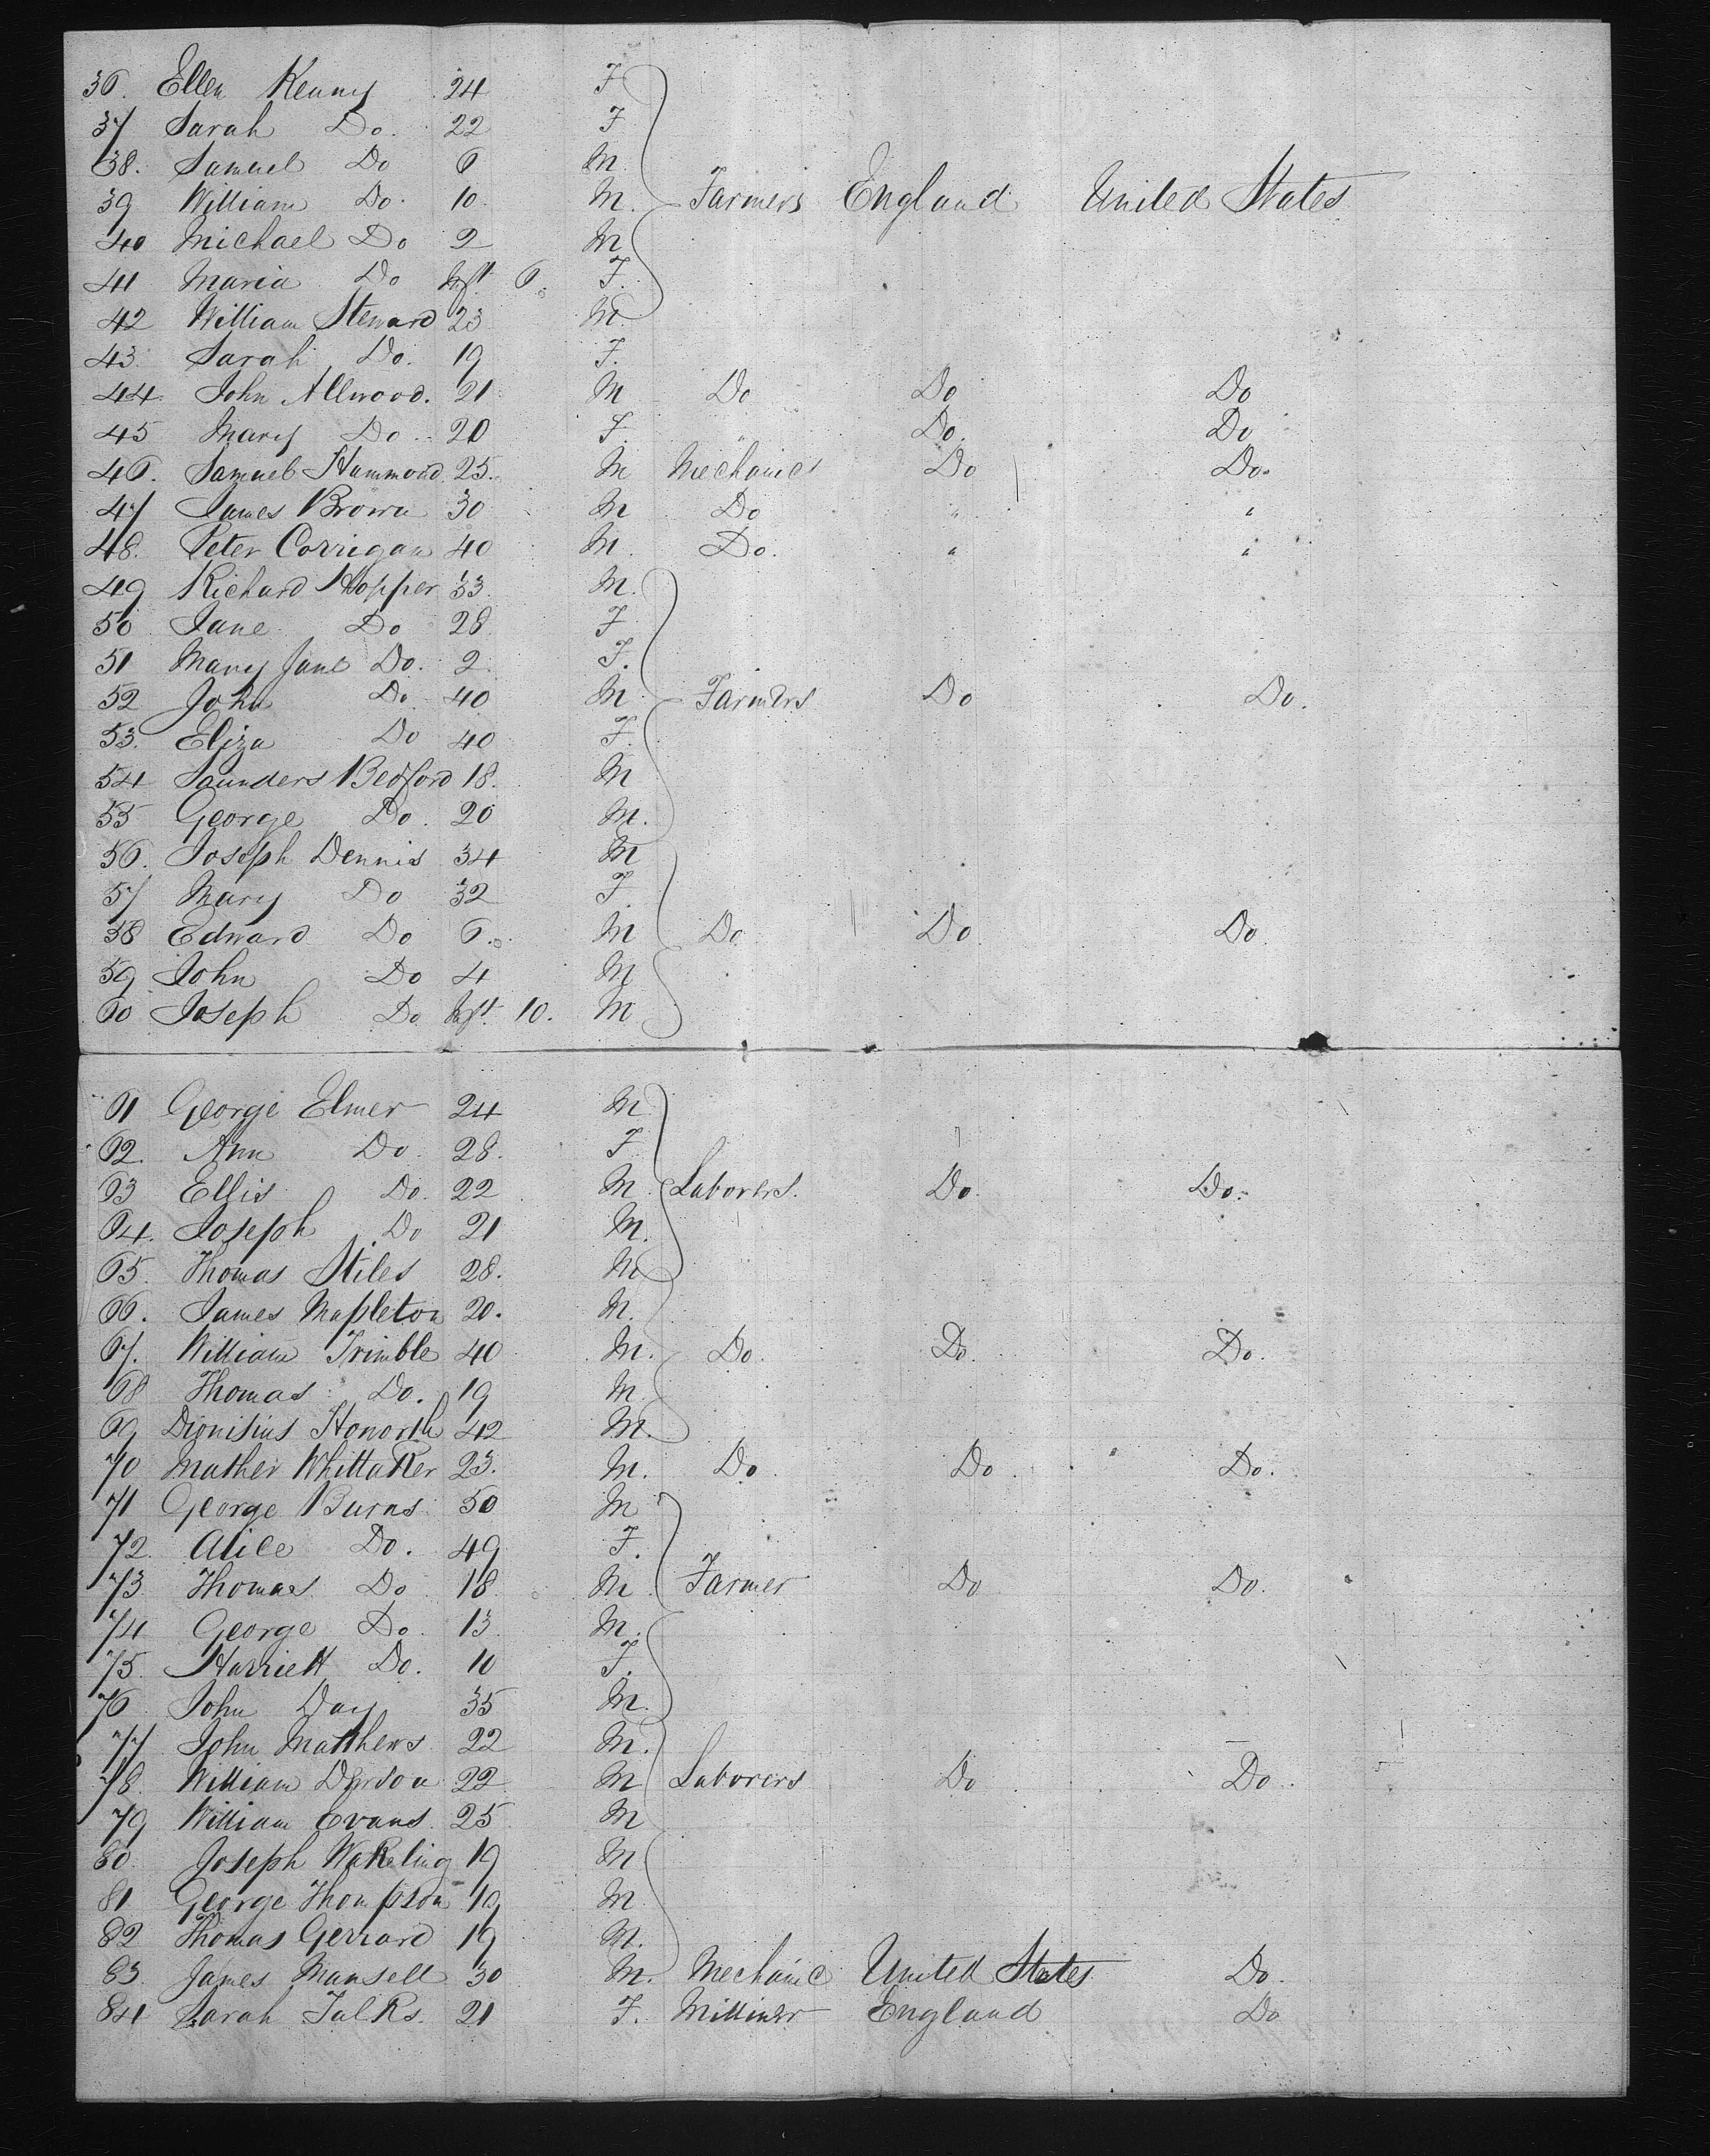 36. Ellen Kenny 24 F
37 Sarah Do. 22 F
38. Samuel Do 6 M
39 William Do. 10 M. Farmers England United States
40 Michael Do 2 M
41 Maria Do Inft 6 F.
42 William Steward 23 M
43 Sarah Do. 19 F.
44. John Allwood. 21 M Do Do Do
45 Mary Do. 20 F. " Do. Do
46. Samuel Hammond 25. M Mechanics Do Do.
47 James Brown 30 M Do " "
48. Peter Corrigan 40 M. Do. " "
49 Richard Hopper 33 M.
50 Jane Do 28 F
51 Mary Jane Do. 2 F.
52 John Do 40 M Farmers Do Do.
53. Eliza Do 40 F.
54 Saunders Bedford 18. M
55 George Do. 20 M.
56. Joseph Dennis 34 M
57 Mary Do 32 F.
58 Edward Do 6. M Do Do Do
59 John Do 4 M
60 Joseph Do Inft. 10. M
61 George Elmer 24 M
62. Ann Do. 28. F
63 Ellis Do. 22 M Laborers. Do. Do.
64. Joseph Do 21 M.
65. Thomas Stiles 28. M
66. James Mapleton 20. M.
67. William Trimble 40 M. Do. Do. Do.
68 Thomas Do. 19 M
69 Dionisius Howorth 42 M.
70 Mather Whittaker 23. M. Do. Do. Do.
71 George Burns 50 M
72. Alice Do. 49 F.
73 Thomas Do 18 M Farmer Do Do.
74 George Do. 13 M.
75. Harriett Do. 10 F.
76 John Day 35 M.
77 John Matthews 22 M.
78. William 22 M Laborers Do Do
79 William Evans. 25 M
80 Joseph Wakeling 19 M
81 George Thompson 19 M
82 Thomas Gerrard 19 M.
83. James Mansell 30 M. Mechanic United States Do.
84 Sarah Talks. 21 F. Milliner England Do